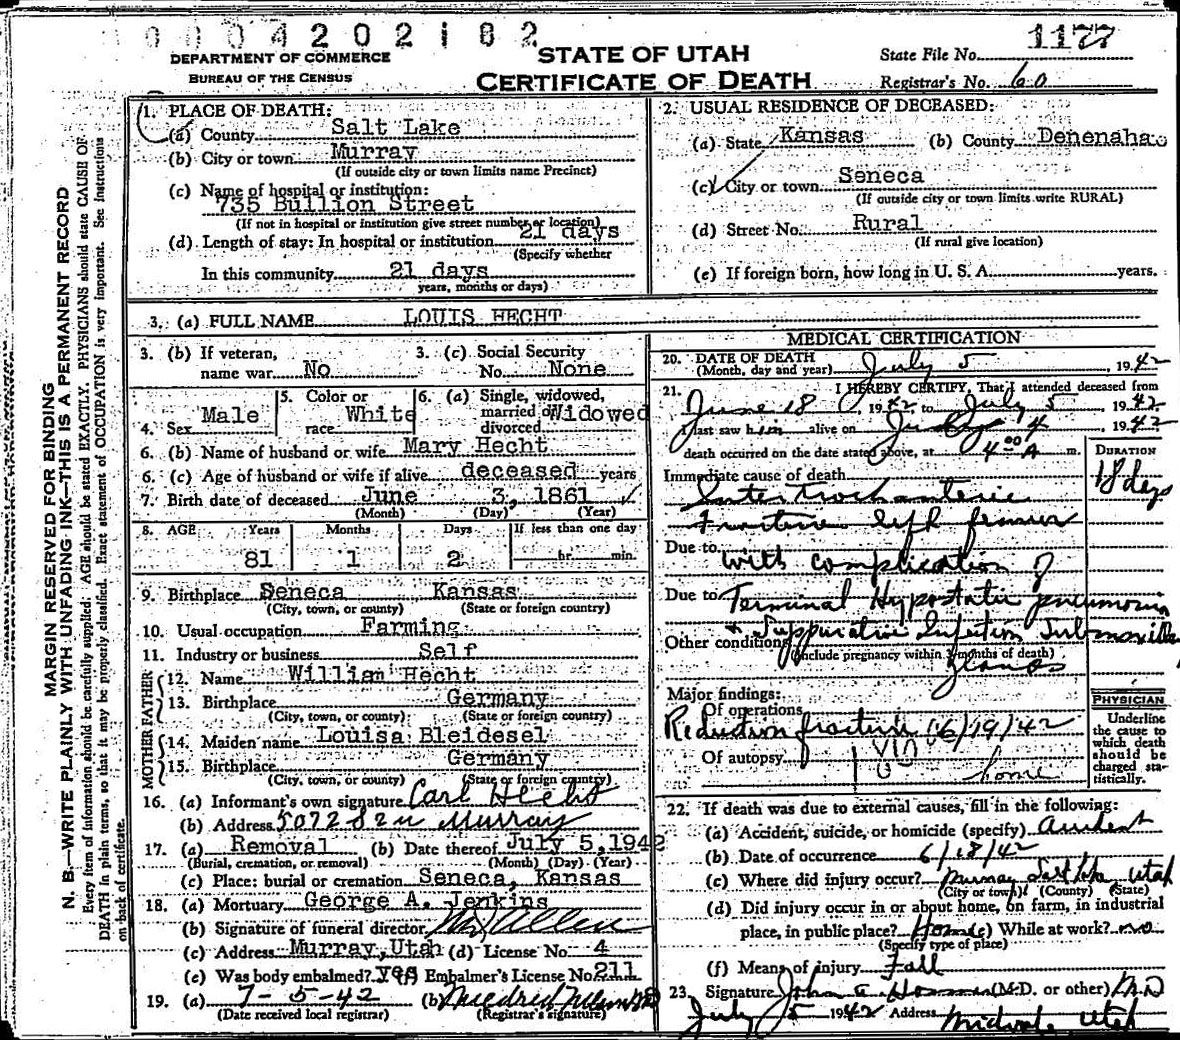 0004202182
DEPARTMENT OF COMMERCE
BUREAU OF THE CENSUS
STATE OF UTAH
CERTIFICATE OF DEATH
State File No. 1177
Registrar's No. 60
MARGIN RESERVED FOR BINDING
N. B.—WRITE PLAINLY WITH UNFADING INK—THIS IS A PERMANENT RECORD
Every item of information should be carefully supplied. AGE should be stated EXACTLY. PHYSICIANS should state CAUSE OF
DEATH in plain terms, so that it may be properly classified. Exact statement of OCCUPATION is very important. See Instructions
on back of certificate.
1. PLACE OF DEATH:
(a) County Salt Lake
(b) City or town Murray
(If outside city or town limits name Precinct)
(c) Name of hospital or institution:
735 Bullion Street
(If not in hospital or institution give street number or location)
(d) Length of stay: In hospital or institution 21 days
(Specify whether
In this community 21 days
years, months or days)
2. USUAL RESIDENCE OF DECEASED:
(a) State Kansas (b) County Denenaha
(c) City or town Seneca
(If outside city or town limits write RURAL)
(d) Street No. Rural
(If rural give location)
(e) If foreign born, how long in U. S. A. years.
3. (a) FULL NAME LOUIS HECHT
3. (b) If veteran, name war No
3. (c) Social Security No. None
4. Sex Male
5. Color or race White
6. (a) Single, widowed, married or divorced Widowed
6. (b) Name of husband or wife Mary Hecht
6. (c) Age of husband or wife if alive deceased years
7. Birth date of deceased June 3, 1861
(Month) (Day) (Year)
8. AGE Years Months Days If less than one day
81 1 2 hr. min.
9. Birthplace Seneca Kansas
(City, town, or county) (State or foreign country)
10. Usual occupation Farming
11. Industry or business Self
FATHER
12. Name William Hecht
13. Birthplace Germany
(City, town, or county) (State or foreign country)
MOTHER
14. Maiden name Louisa Bleidesel
15. Birthplace Germany
(City, town, or county) (State or foreign country)
16. (a) Informant's own signature Carl Hecht
(b) Address Murray
17. (a) Removal (b) Date thereof July 5, 1942
(Burial, cremation, or removal) (Month) (Day) (Year)
(c) Place: burial or cremation Seneca, Kansas
18. (a) Mortuary George A. Jenkins
(b) Signature of funeral director Allen
(c) Address Murray, Utah (d) License No. 4
(e) Was body embalmed? Yes Embalmer's License No. 211
19. (a) 7-5-42 (b) Mildred
(Date received local registrar) (Registrar's signature)
MEDICAL CERTIFICATION
20. DATE OF DEATH July 5, 1942
(Month, day and year)
21. I HEREBY CERTIFY, That I attended deceased from
June 18, 1942, to July 5, 1942.
I last saw him alive on July 4, 1942
death occurred on the date stated above, at 4 00 A m.
DURATION
Immediate cause of death 18 days
Intertrochanteric
Fracture left femur
Due to with complication of
Due to Terminal Hypostatic pneumonia
Other conditions + Suppurative Infection Submaxillary
(Include pregnancy within 3 months of death)
glands
Major findings:
Of operations
Reduction fracture 6/19/42
Of autopsy
home
PHYSICIAN
Underline the cause to which death should be charged statistically.
22. If death was due to external causes, fill in the following:
(a) Accident, suicide, or homicide (specify) Accident
(b) Date of occurrence 6/18/42
(c) Where did injury occur? Murray Salt Lake Utah
(City or town) (County) (State)
(d) Did injury occur in or about home, on farm, in industrial
place, in public place? Home (e) While at work? no
(Specify type of place)
(f) Means of injury Fall
23. Signature John (M.D. or other) M.D
July 5 1942 Address Midvale Utah